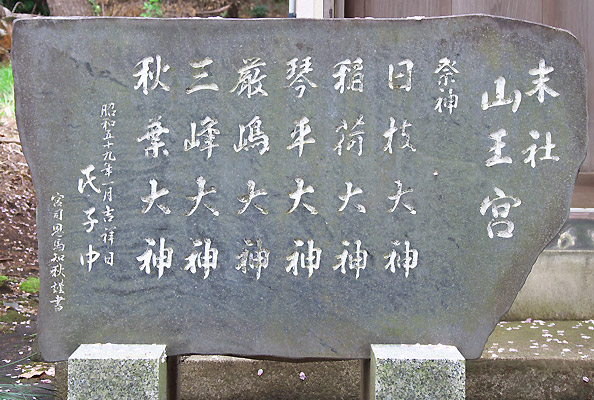 末社
山王宮
祭神
日枝大神
稲荷大神
琴平大神
厳嶋大神
三峰大神
秋葉大神
昭和五十九年一月吉祥日
氏子中
宮司恩馬知秋謹書